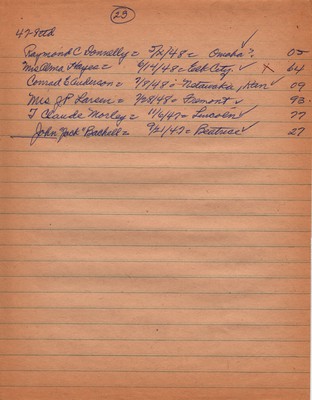 (23)
47-80th
Raymond C. Donnelly = 5/2/48 = Omaha? ✓ 05
Mrs Alma Hayes = 6/14/48 = Elk City. ✓ X 64
Conrad E Anderson = 7/8/48 = Netawaka, Kan ✓ 09
Mrs. J.P. Larsen = 7/28/48 = Fremont ✓ 93
T Claude Morley = 11/6/47 = Lincoln ✓ 77
John "Jack" Bachell = 9/21/47 = Beatrice ✓ 27